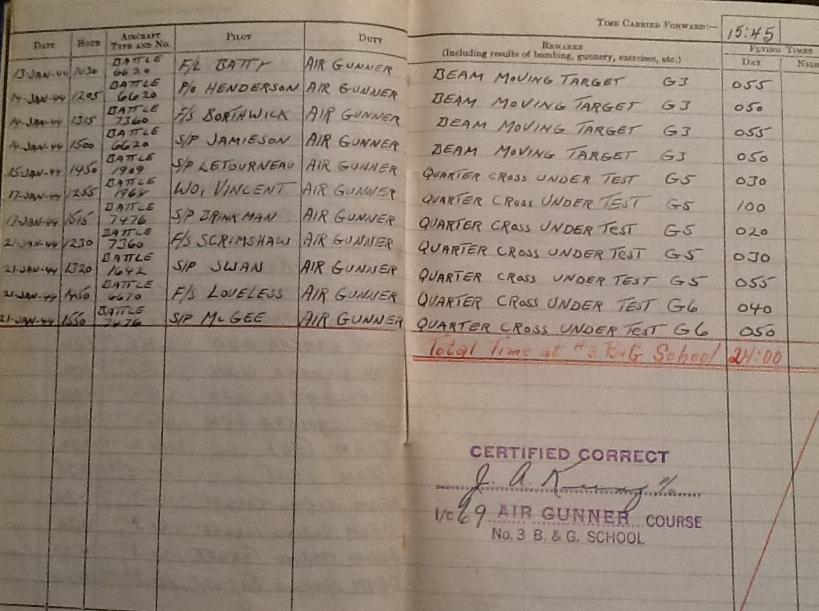 TIME CARRIED FORWARD:— 15:45
DATE HOUR AIRCRAFT TYPE AND NO. PILOT DUTY REMARKS (Including results of bombing, gunnery, exercises, etc.) FLYING TIMES DAY
13-JAN-44 1030 BATTLE 6620 F/L BATTY AIR GUNNER BEAM MOVING TARGET G3 055
14-JAN-44 1205 BATTLE 6620 P/O HENDERSON AIR GUNNER BEAM MOVING TARGET G3 050
14-JAN-44 1315 BATTLE 7360 F/S BORTHWICK AIR GUNNER BEAM MOVING TARGET G3 055
14-JAN-44 1500 BATTLE 6620 S/P JAMIESON AIR GUNNER BEAM MOVING TARGET G3 050
15-JAN-44 1450 BATTLE 1909 S/P LETOURNEAU AIR GUNNER QUARTER CROSS UNDER TEST G5 030
17-JAN-44 1255 BATTLE WO1 VINCENT AIR GUNNER QUARTER CROSS UNDER TEST G5 100
17-JAN-44 1515 BATTLE 7476 S/P BRINKMAN AIR GUNNER QUARTER CROSS UNDER TEST G5 020
21-JAN-44 1230 BATTLE 7360 F/S SCRIMSHAW AIR GUNNER QUARTER CROSS UNDER TEST G5 030
21-JAN-44 1320 BATTLE 1642 S/P SWAN AIR GUNNER QUARTER CROSS UNDER TEST G5 055
21-JAN-44 1450 BATTLE 6670 F/S LOVELESS AIR GUNNER QUARTER CROSS UNDER TEST G6 040
21-JAN-44 1550 BATTLE 7476 S/P McGEE AIR GUNNER QUARTER CROSS UNDER TEST G6 050
Total Time at #3 B&G School 24:00
CERTIFIED CORRECT
J. A.
I/C 69 AIR GUNNER COURSE
No. 3 B. & G. SCHOOL